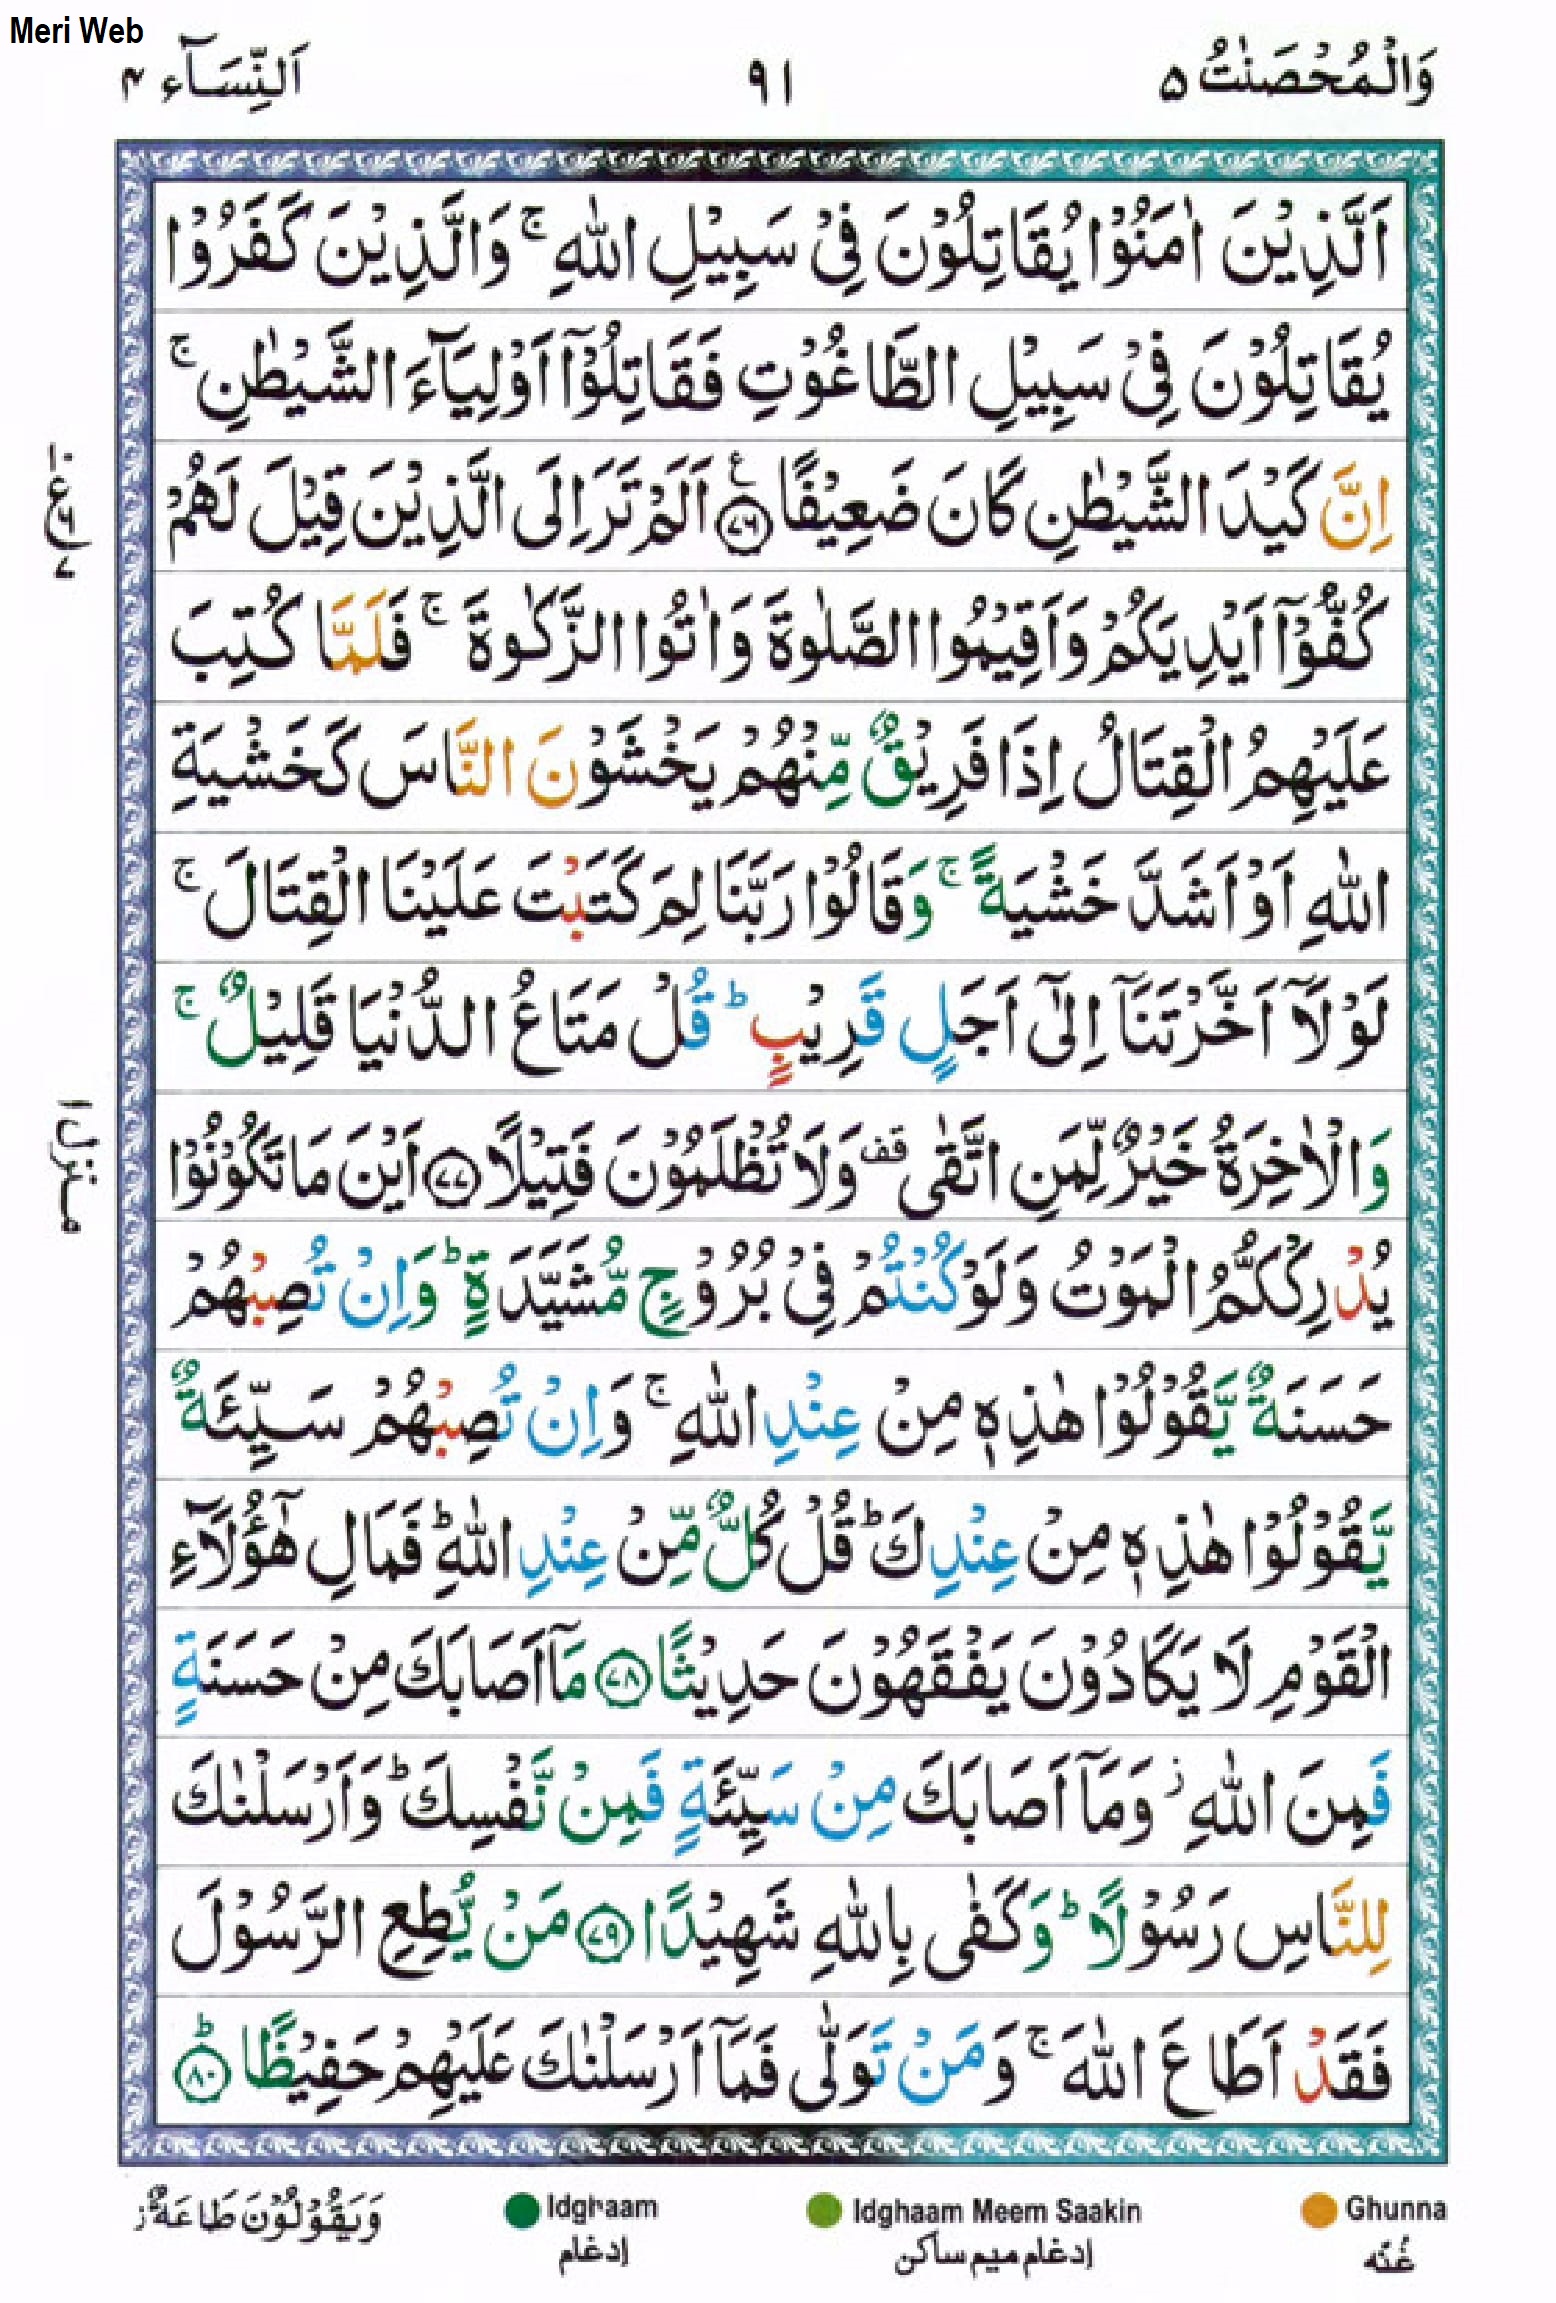 Meri Web
وَالْمُحْصَنٰتُ ۵
۹۱
اَلنِّسَآء ۴
اَلَّذِیْنَ اٰمَنُوْا یُقَاتِلُوْنَ فِیْ سَبِیْلِ اللّٰهِ ۚ وَالَّذِیْنَ كَفَرُوْا
یُقَاتِلُوْنَ فِیْ سَبِیْلِ الطَّاغُوْتِ فَقَاتِلُوْۤا اَوْلِیَآءَ الشَّیْطٰنِ ۚ
اِنَّ كَیْدَ الشَّیْطٰنِ كَانَ ضَعِیْفًا ﴿۷۶﴾ اَلَمْ تَرَ اِلَی الَّذِیْنَ قِیْلَ لَهُمْ
كُفُّوْۤا اَیْدِیَكُمْ وَاَقِیْمُوا الصَّلٰوةَ وَاٰتُوا الزَّكٰوةَ ۚ فَلَمَّا كُتِبَ
عَلَیْهِمُ الْقِتَالُ اِذَا فَرِیْقٌ مِّنْهُمْ یَخْشَوْنَ النَّاسَ كَخَشْیَةِ
اللّٰهِ اَوْ اَشَدَّ خَشْیَةً ۚ وَقَالُوْا رَبَّنَا لِمَ كَتَبْتَ عَلَیْنَا الْقِتَالَ ۚ
لَوْلَاۤ اَخَّرْتَنَاۤ اِلٰۤی اَجَلٍ قَرِیْبٍ ؕ قُلْ مَتَاعُ الدُّنْیَا قَلِیْلٌ ۚ
وَالْاٰخِرَةُ خَیْرٌ لِّمَنِ اتَّقٰی قف وَلَا تُظْلَمُوْنَ فَتِیْلًا ﴿۷۷﴾ اَیْنَ مَا تَكُوْنُوْا
یُدْرِكْكُّمُ الْمَوْتُ وَلَوْ كُنْتُمْ فِیْ بُرُوْجٍ مُّشَیَّدَةٍ ؕ وَاِنْ تُصِبْهُمْ
حَسَنَةٌ یَّقُوْلُوْا هٰذِهٖ مِنْ عِنْدِ اللّٰهِ ۚ وَاِنْ تُصِبْهُمْ سَیِّئَةٌ
یَّقُوْلُوْا هٰذِهٖ مِنْ عِنْدِكَ ؕ قُلْ كُلٌّ مِّنْ عِنْدِ اللّٰهِ ؕ فَمَالِ هٰۤؤُلَآءِ
الْقَوْمِ لَا یَكَادُوْنَ یَفْقَهُوْنَ حَدِیْثًا ﴿۷۸﴾ مَاۤ اَصَابَكَ مِنْ حَسَنَةٍ
فَمِنَ اللّٰهِ ؗ وَمَاۤ اَصَابَكَ مِنْ سَیِّئَةٍ فَمِنْ نَّفْسِكَ ؕ وَاَرْسَلْنٰكَ
لِلنَّاسِ رَسُوْلًا ؕ وَكَفٰی بِاللّٰهِ شَهِیْدًا ﴿۷۹﴾ مَنْ یُّطِعِ الرَّسُوْلَ
فَقَدْ اَطَاعَ اللّٰهَ ۚ وَمَنْ تَوَلّٰی فَمَاۤ اَرْسَلْنٰكَ عَلَیْهِمْ حَفِیْظًا ﴿۸۰﴾ؕ
منزل ۱
Ghunna
غُنّه
Idghaam Meem Saakin
إدغام ميم ساكن
Idghaam
إدغام
وَیَقُوْلُوْنَ طَاعَةٌ ز